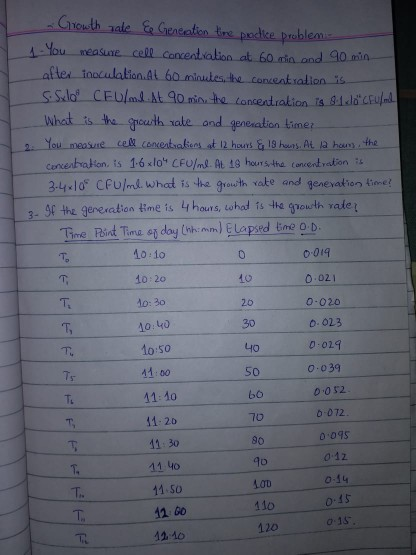 - Growth rate & Generation time practice problem:-
1- You measure cell concentration at 60 min and 90 min
after inoculation. At 60 minutes, the concentration is
CFU/ml At 90 min, the concentration is CFU/ml
What is the growth rate and generation time?
2- You measure cell concentrations at 12 hours & 18 hours. At 12 hours, the
concentration is 1.6×10⁴ CFU/ml. At 18 hours the concentration is
CFU/ml What is the growth rate and generation time?
3- If the generation time is 4 hours, what is the growth rate?
Time Point Time of day (hh:mm) Elapsed time O.D.
T₀ 10:10 0 0.019
T₁ 10:20 10 0.021
T₂ 10:30 20 0.020
T₃ 10:40 30 0.023
T₄ 10:50 40 0.029
T₅ 11:00 50 0.039
T₆ 11:10 60 0.052
T₇ 11.20 70 0.072
T₈ 11.30 80 0.095
T₉ 11.40 90 0.12
T₁₀ 11.50 100 0.14
T₁₁ 12.00 110 0.15
T₁₂ 12.10 120 0.15